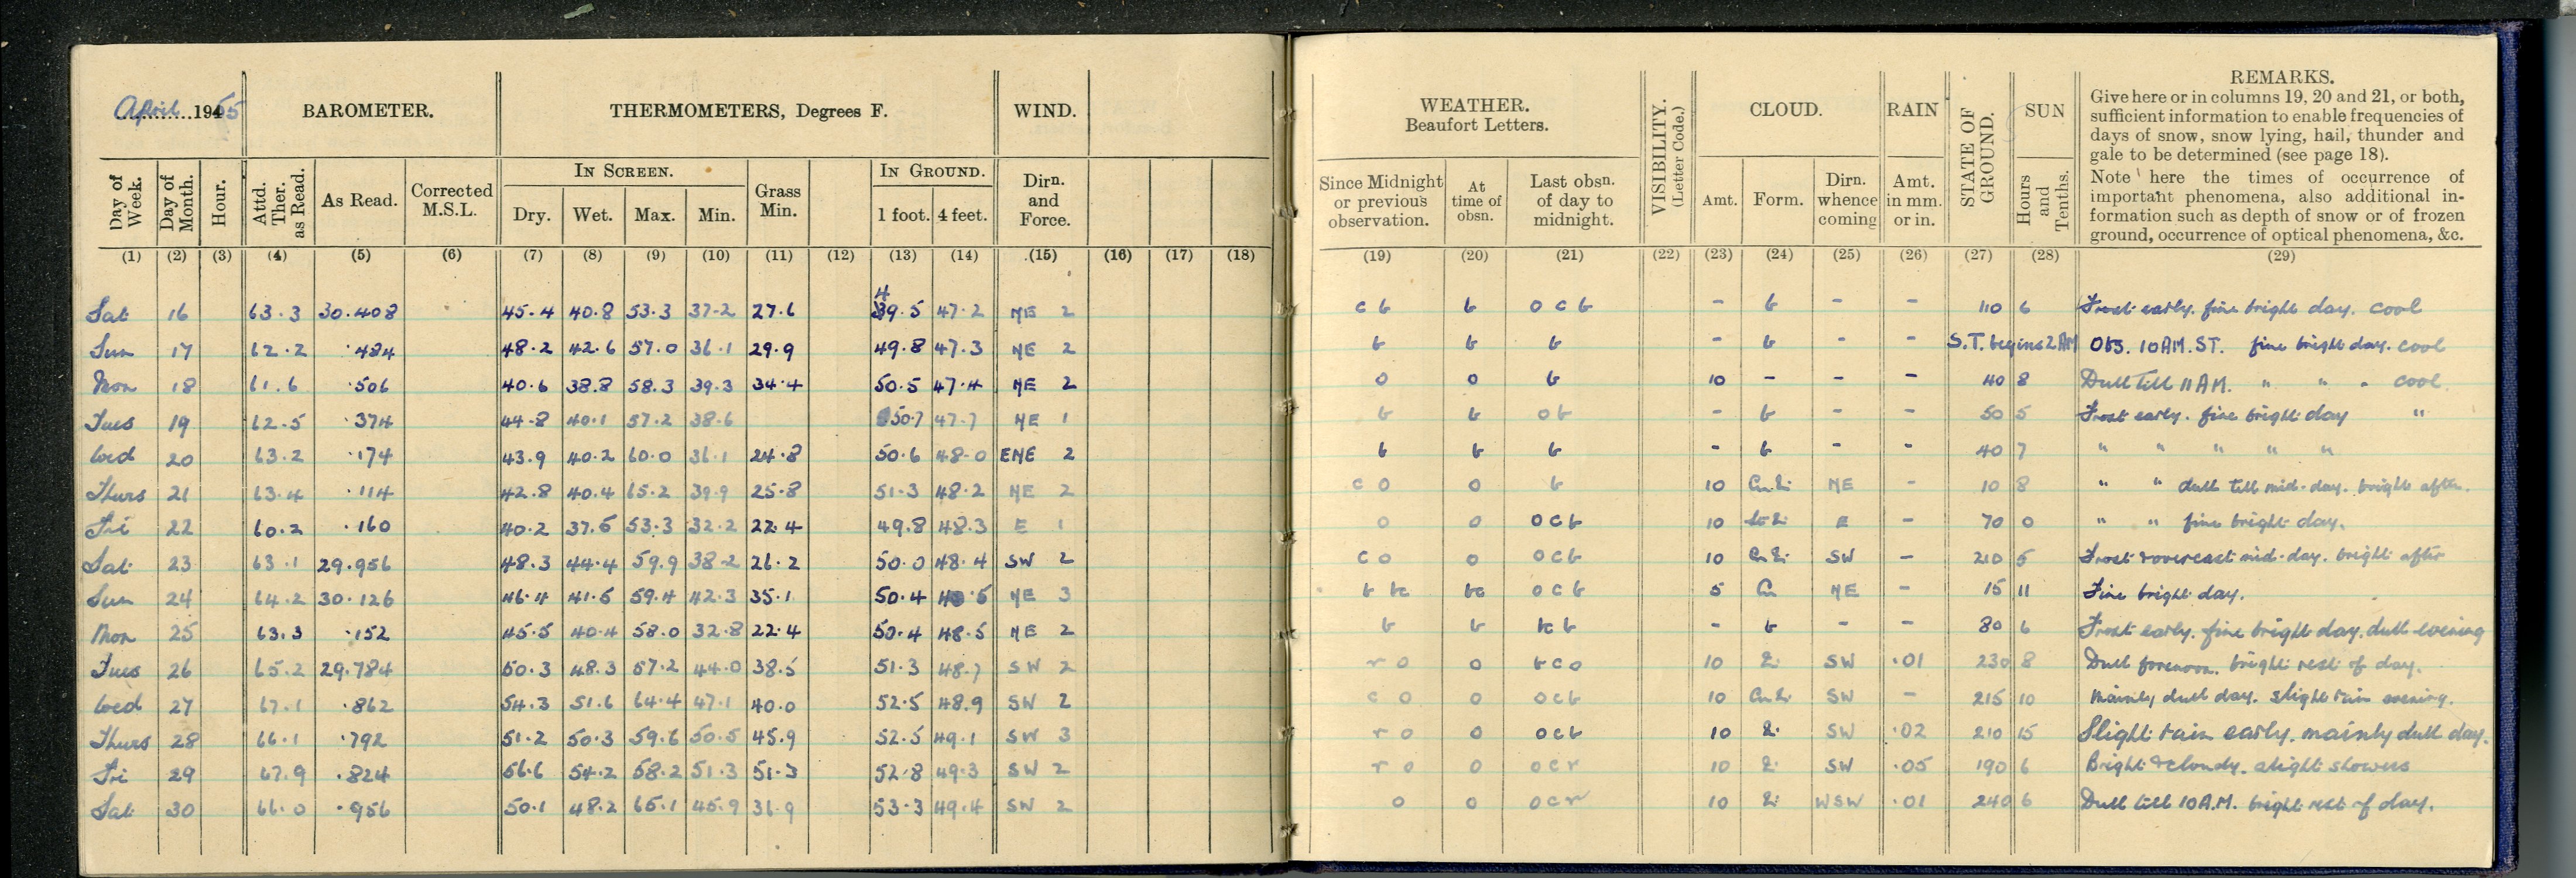 April 1955 BAROMETER. THERMOMETERS, Degrees F. WIND.
IN SCREEN. Grass Min. IN GROUND. Dirn. and Force.
Day of Week. Day of Month. Hour. Attd. Ther. as Read. As Read. Corrected M.S.L. Dry. Wet. Max. Min. 1 foot. 4 feet.
(1) (2) (3) (4) (5) (6) (7) (8) (9) (10) (11) (12) (13) (14) (15) (16) (17) (18)
Sat 16 63.3 30.408 45.4 40.8 53.3 37.2 27.6 49.5 47.2 NE 2
Sun 17 62.2 .484 48.2 42.6 57.0 36.1 29.9 49.8 47.3 NE 2
Mon 18 61.6 .506 40.6 38.8 58.3 39.3 34.4 50.5 47.4 NE 2
Tues 19 62.5 .374 44.8 40.1 57.2 38.6 50.7 47.7 NE 1
Wed 20 63.2 .174 43.9 40.2 60.0 36.1 24.8 50.6 48.0 ENE 2
Thurs 21 63.4 .114 42.8 40.4 65.2 39.9 25.8 51.3 48.2 NE 2
Fri 22 60.2 .160 40.2 37.6 53.3 32.2 22.4 49.8 48.3 E 1
Sat 23 63.1 29.956 48.3 44.4 59.9 38.2 26.2 50.0 48.4 SW 2
Sun 24 64.2 30.126 46.4 41.5 59.4 42.3 35.1 50.4 48.5 NE 3
Mon 25 63.3 .152 45.5 40.4 58.0 32.8 22.4 50.4 48.5 NE 2
Tues 26 65.2 29.784 50.3 48.3 57.2 44.0 38.5 51.3 48.7 SW 2
Wed 27 67.1 .862 54.3 51.6 64.4 47.1 40.0 52.5 48.9 SW 2
Thurs 28 66.1 .792 51.2 50.3 59.6 50.5 45.9 52.5 49.1 SW 3
Fri 29 67.9 .824 56.6 54.2 58.2 51.3 51.3 52.8 49.3 SW 2
Sat 30 66.0 .956 50.1 48.2 65.1 45.9 36.9 53.3 49.4 SW 2
WEATHER. Beaufort Letters. VISIBILITY. (Letter Code.) CLOUD. RAIN STATE OF GROUND. SUN REMARKS.
Give here or in columns 19, 20 and 21, or both,
sufficient information to enable frequencies of
days of snow, snow lying, hail, thunder and
gale to be determined (see page 18).
Note here the times of occurrence of
important phenomena, also additional in-
formation such as depth of snow or of frozen
ground, occurrence of optical phenomena, &c.
Since Midnight or previous observation. At time of obsn. Last obsn. of day to midnight. Amt. Form. Dirn. whence coming Amt. in mm. or in. Hours and Tenths.
(19) (20) (21) (22) (23) (24) (25) (26) (27) (28) (29)
c b b o c b - b - - 110 6 Frost early. fine bright day. cool
b b b - b - - S.T. begins 2 AM Obs. 10 AM. ST. fine bright day. cool
o o b 10 - - - 40 8 Dull till 11 AM. " " " cool
b b o b - b - - 50 5 Frost early. fine bright day "
b b b - b - - 40 7 " " " " "
c o o b 10 NE - 10 8 " " dull till mid-day. bright after.
o o o c b 10 E - 70 0 " " fine bright day.
c o o o c b 10 SW - 210 5 Frost & overcast mid-day. bright after
b bc bc o c b 5 Cu NE - 15 11 Fine bright day.
b b bc b - b - - 80 6 Frost early. fine bright day. dull evening
r o o b c o 10 SW .01 230 8 Dull forenoon. bright rest of day.
c o o o c b 10 SW - 215 10 Mainly dull day. slight rain evening.
r o o o c b 10 SW .02 210 15 Slight rain early. mainly dull day.
r o o o c r 10 SW .05 190 6 Bright & cloudy. slight showers
o o o c r 10 WSW .01 240 6 Dull till 10 A.M. bright rest of day.